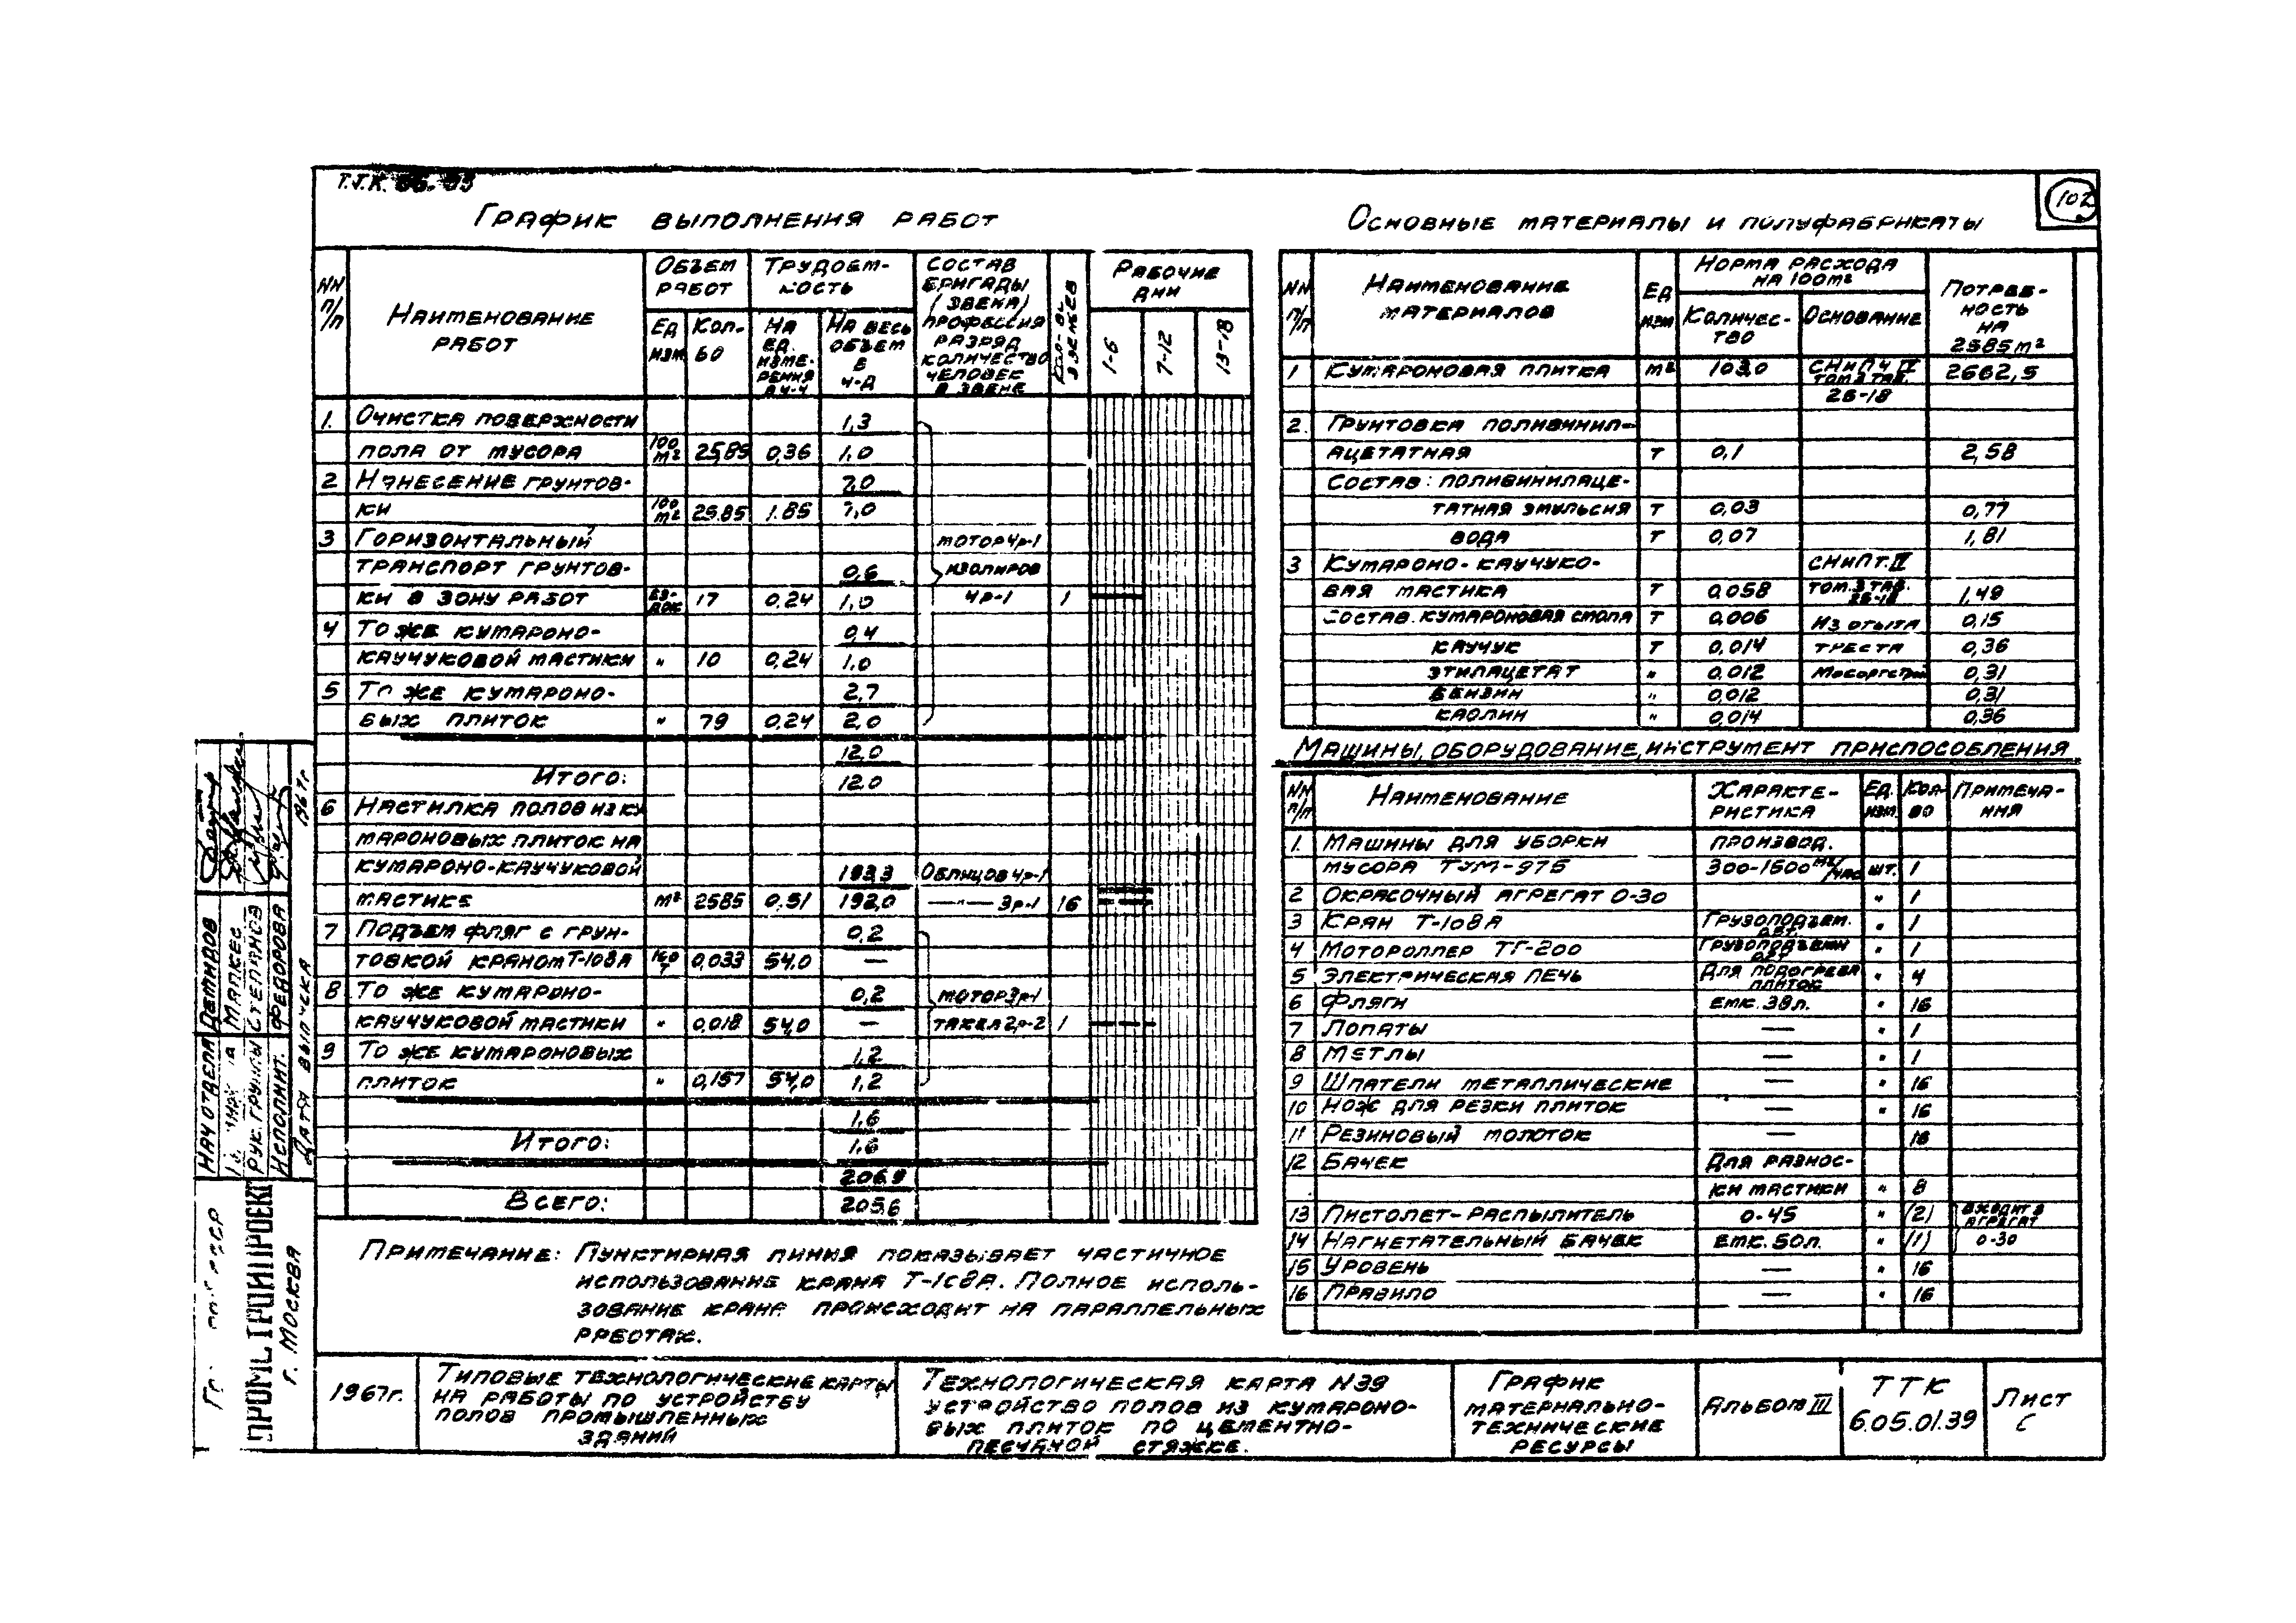 Т.Т.К.
102
График выполнения работ
NN п/п
Наименование работ
Объем работ
Трудоем-кость
Состав бригады (звена) профессия разряд количество человек в звене
Рабочие дни
Ед изм
Кол-во
На ед. изме-рения в ч-ч
На весь объем в ч-д
1-6
7-12
13-18
1. Очистка поверхности 1,3
пола от мусора 100 м² 25,85 0,36 1,0
2 Нанесение грунтов-
ки 100 м² 25.85 1.85
3 Горизонтальный мотор 4р-1
транспорт грунтов- 0,6 изолиров
ки в зону работ ез-док 17 0,24 1,0 4р-1 1
4 То же кумароно- 0,4
каучуковой мастики " 10 0,24 1,0
5 То же кумароно- 2,7
вых плиток " 79 0,24 2,0
12,0
Итого: 12.0
6 Настилка полов из ку
мароновых плиток на
кумароно-каучуковой 193,3 Облицов 4р-1
мастике м² 2585 0,51 192,0 —"— 3р-1 16
7 Подъем фляг с грун- 0,2
товкой краном Т-108А 100 т 0,033 54.0 —
8 То же кумароно- 0,2 мотор 3р-1
каучуковой мастики " 0,018 54,0 — такел 2р-2 1
9 То же кумароновых 1,2
плиток " 0,157 54,0 1,2
1,6
Итого: 1,6
206.9
Всего: 205,6
Примечание: Пунктирная линия показывает частичное
использование крана Т-108А. Полное исполь-
зование крана происходит на параллельных
работах.
Основные материалы и полуфабрикаты
NN п/п
Наименование материалов
Ед изм
Норма расхода на 100м²
Количес-тво
Основание
Потреб-ность на 2585 м²
1 Кумароновая плитка м² 103,0 СНиП ч IV том 3 таб. 2662,5
26-18
2. Грунтовка поливинил-
ацетатная т 0,1 2,58
Состав: поливинилаце-
татная эмульсия т 0,03 0,77
вода т 0,07 1,81
3 Кумароно-каучуко- СНиП т. IV
вая мастика т 0,058 том. 3 таб. 26-18 1,49
Состав. кумароновая смола т 0,006 Из опыта 0,15
каучук т 0,014 треста 0,36
этилацетат " 0,012 Мосоргстрой 0,31
бензин " 0,012 0,31
каолин " 0,014 0,36
Машины, оборудование, инструмент приспособления
NN п/п
Наименование
Характе-ристика
Ед. изм.
Кол-во
Примеча-ния
1. Машины для уборки производ.
мусора ТУМ-975 300-1500 м²/час шт. 1
2 Окрасочный агрегат О-30 " 1
3 Кран Т-108А Грузоподъем. " 1
4 Мотороллер ТГ-200 Грузоподъемн " 1
5 Электрическая печь Для подогрева плиток " 4
6 Фляги Емк. 38л. " 16
7 Лопаты — " 1
8 Метлы — " 1
9 Шпатели металлические — " 16
10 Нож для резки плиток — " 16
11 Резиновый молоток — 16
12 Бачек Для разнос-
ки мастики " 8
13 Пистолет-распылитель О-45 " (2) Входит в агрегат
14 Нагнетательный бачек Емк. 50л. " (1) О-30
15 Уровень — " 16
16 Правило — " 16
Нач отдела Демидов
Маркес
Рук. группы Степанов
Исполнит. Федорова
Дата выпуска 1967г
г. Москва
1967г.
Типовые технологические карты
на работы по устройству
полов промышленных
зданий
Технологическая карта N39
устройство полов из кумароно-
вых плиток по цементно-
песчаной стяжке.
График
материально-
технические
ресурсы
Альбом III
ТТК
6.05.01.39
Лист